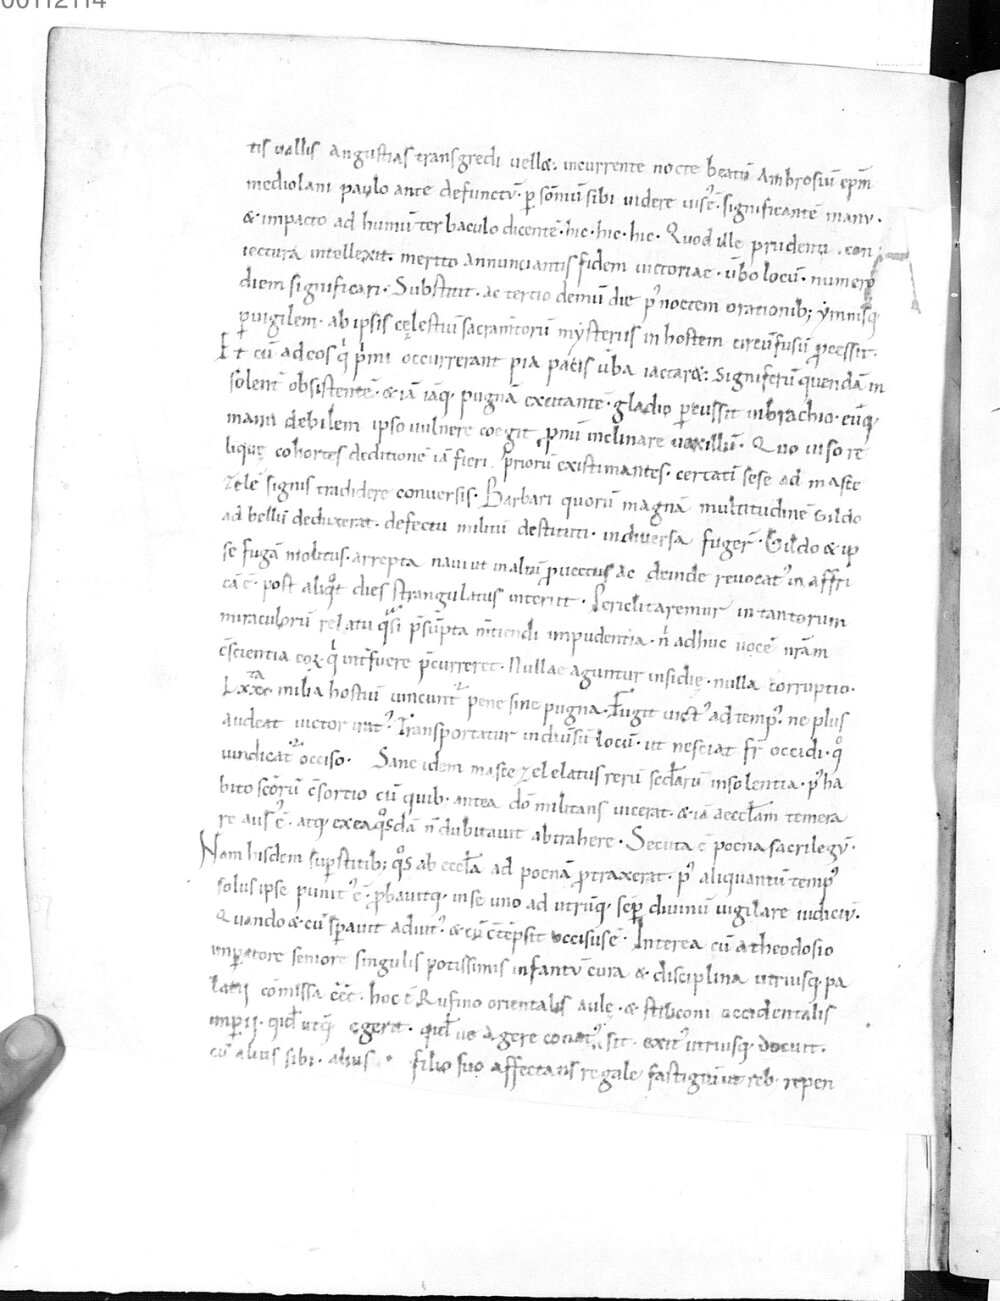 00112114
tis vallis angustias transgredi vell&. incurrente nocte beatū Ambrosiū epm̄
mediolani paulo ante defunctū· p̱ somnū sibi videre uis'ē· significantē manu·
& impacto ad humū ter baculo dicentē· hic· hic· hic· Quod ille prudenti con
iectura intellexit· merito annunciantis fidem uictoriae· ūbo locū· numero
diem significari· Substitit· ac tertio demū die p' noctem orationib; ymnisq;
p̱uigilem· ab ipsis cęlestiū sacramtorū mysteriis in hostem circūfusū p̱cessit·
Et cū ad eos q' p'mi occurrerant pia pacis ūba iactar&: Signiferū quendā in
solent' obsistentē· & iā iāq; pugnā excitantē· gladio p̱cussit in brachio· eūq;
manu debilem ipso uulnere coegit p̱nū inclinare uexillū· Quo uiso re
liquę cohortes deditionē iā fieri priorū existimantes· certatī sese ad masce
zelē signis tradidere conuersis· Barbari quorū magnā multitudinē Gildo
ad bellū deduxerat· defectu militū destituti· in diuersa fuger̄· Gildo & ip
se fugā molitus· arrepta naui ut in altū p̱uectus ac deinde reuocat' in affri
cā ē· post aliq°t dies strangulatus interiit· Periclitaremur in tantorum
miraculorū relatu q̄si p̄sūpta m̄tiendi impudentia· n' adhuc uocē nr̄am
c̄scientia eoꝝ q' int'fuere p̄curreret· Nullae aguntur insidię· nulla corruptio·
Lxx ta milia hostiū uincunt' pene sine pugna· Fugit uict' ad temp'· ne plus
audeat uictor irat'· Transportatur in diūsū locū· ut nesciat fr̄ occidi· q°
uindicat' occiso· Sane idem mascezel elatus rerū secdarū insolentia· p' ha
bito sc̄orū c̄sortio cū quib· antea dō militans uicerat· & iā aeccl̄am temera
re aus'ē· atq; ex ea q°sdā n̄ dubitauit abtrahere· Secuta ē poena sacrilegū·
Nam hisdem sup̱stitib; q°s ab eccl̄a ad poenā p̱traxerat· p' aliquantū temp'
solus ipse punit' ē· p̱bauitq· in se uno ad utrūq; semp̱ diuinū uigilare iudiciū·
Quando & cū sp̱auit adiut'· & cū c̄tēpsit occisus ē· Interea cū a theodosio
imp̱atore seniore singulis potissimis infantū cura & disciplina utriusq; pa
latij cōmissa ēēt· hoc ē Rufino orientalis aulę· & stiliconi occidentalis
imp̱ij· quid uterq; egerit· quid ue agere conat' sit· exit' utriusq; docuit·
cū alius sibi· alius filio suo affectans regale fastigiū ut reb· repen